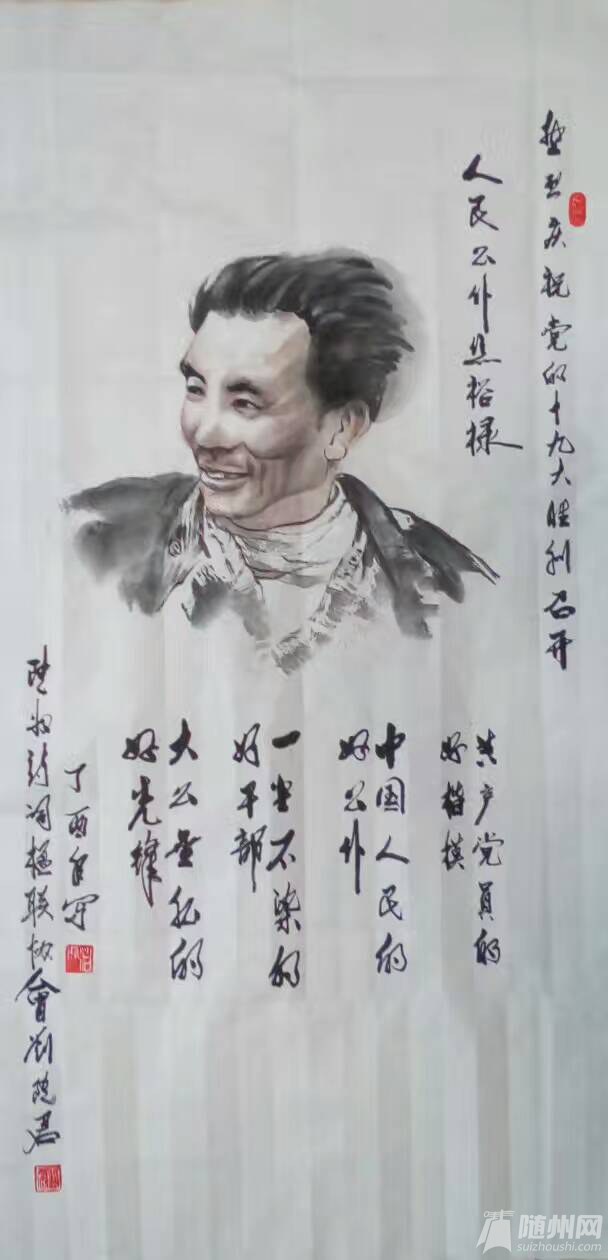 热烈庆祝党的十九大胜利召开
人民公仆焦裕禄
共产党员的
好楷模
中国人民的
好公仆
一尘不染的
好干部
大公無私的
好先锋
丁酉年
随州诗词楹联协會刘
随州网
suizhoushi.com